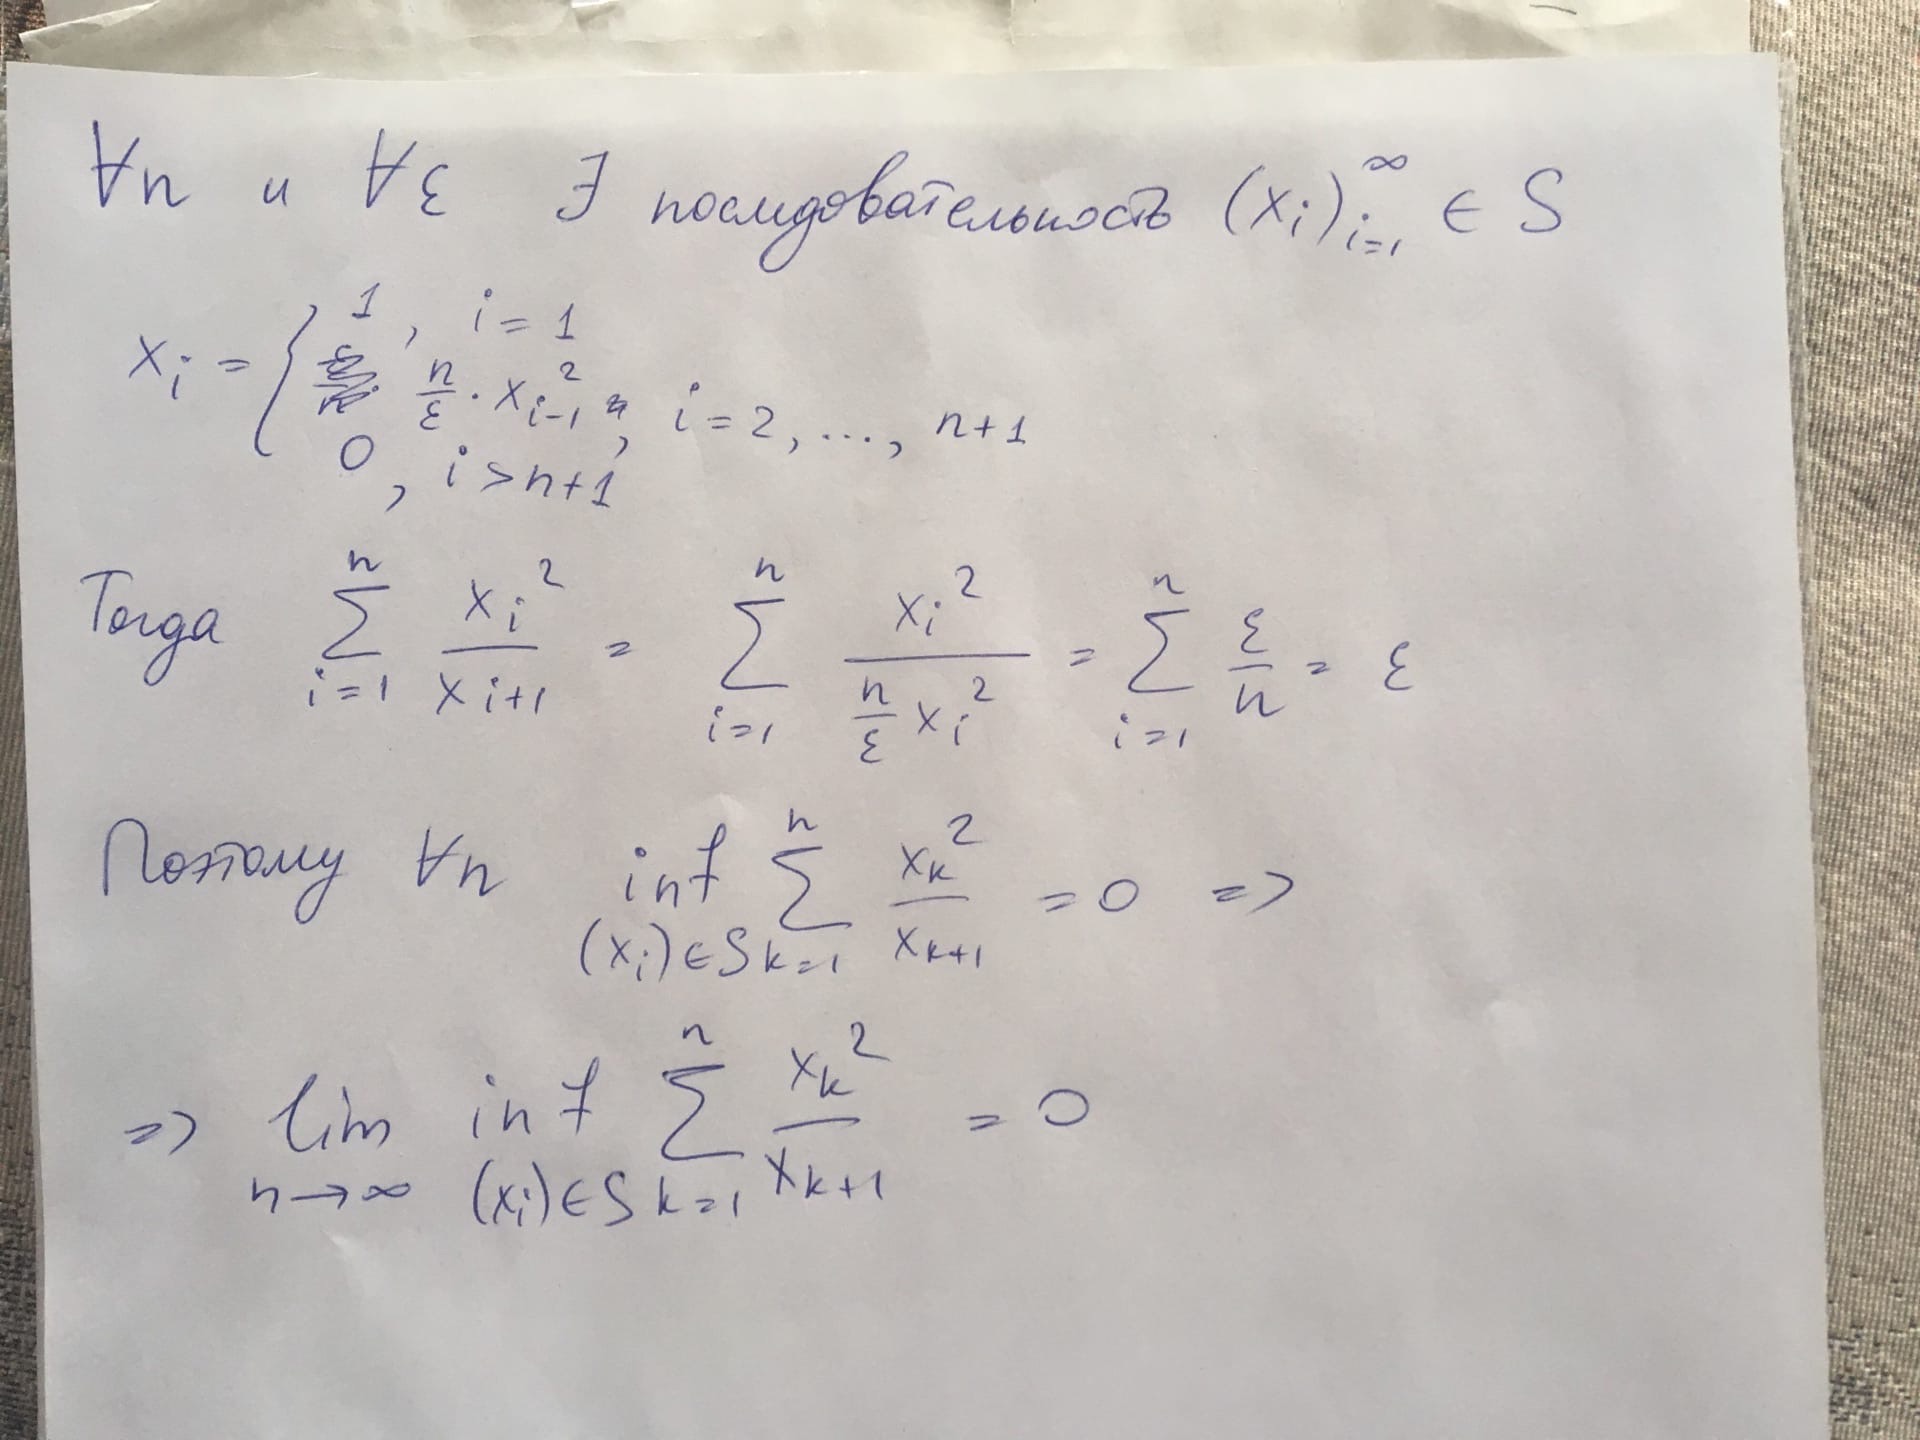 ∀n и ∀ε ∃ последовательность (x_i)_{i=1}^∞ ∈ S
x_i = { 1, i = 1
n/ε · x_{i-1}^2, i = 2, ..., n+1
0, i > n+1
Тогда ∑_{i=1}^n x_i^2/x_{i+1} = ∑_{i=1}^n x_i^2/(n/ε x_i^2) = ∑_{i=1}^n ε/n = ε
Поэтому ∀n inf_{(x_i)∈S} ∑_{k=1}^n x_k^2/x_{k+1} = 0 =>
=> lim_{n→∞} inf_{(x_i)∈S} ∑_{k=1}^n x_k^2/x_{k+1} = 0